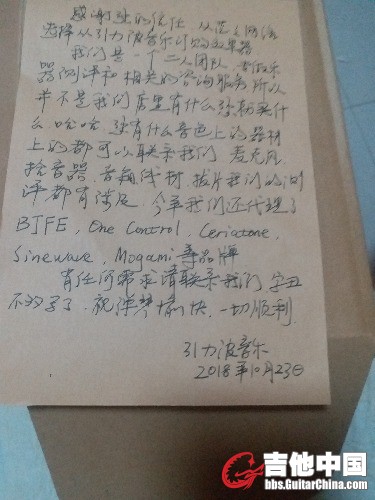 感谢您的信任，从茫茫网络
选择从引力波音乐订购效果器
我们是一个二人团队，有做乐
器测评和相关的咨询服务，所以
并不是我们店里有什么该都买什
么，哈哈，没有什么音色上的器材
上的都可以联系我们，麦克风，
拾音器，音箱线材，拨片我们的测
评都有涉及，今年我们还代理了
BJFE, One Control, Ceriatone,
Sinewave, Mogami等品牌
有任何需求请联系我们，字丑
不多写了，祝弹琴愉快，一切顺利
引力波音乐
2018年10月23日
吉他中国
bbs.GuitarChina.com